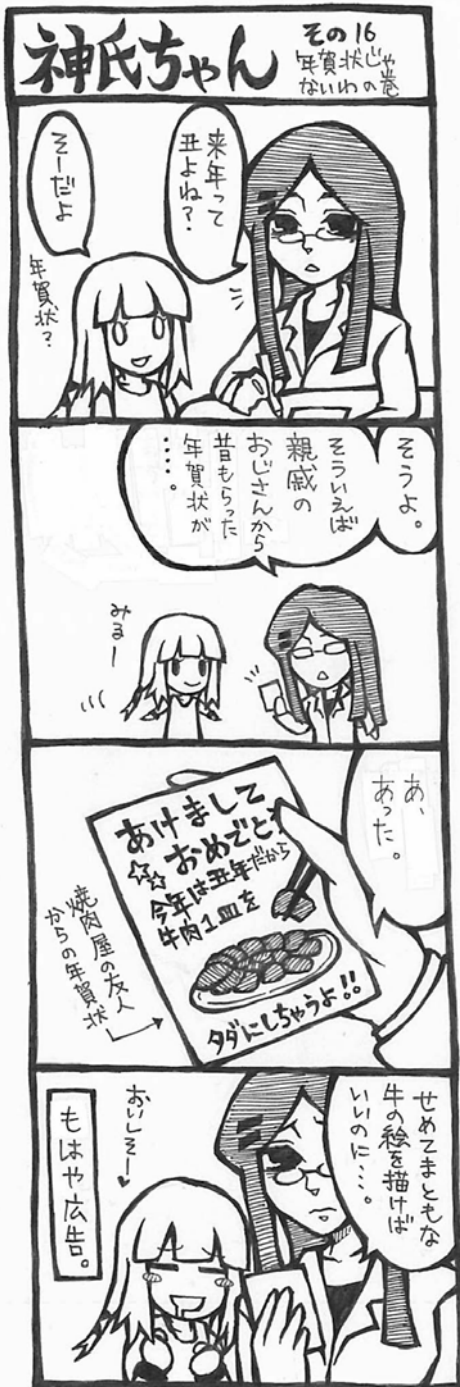 神氏ちゃん
その16
年賀状じゃ
ないわの巻
来年って
丑よね?
そーだよ
年賀状?
そうよ。
そういえば
親戚の
おじさんから
昔もらった
年賀状が
・・・・。
みるー
あ、
あった。
あけまして
おめでとう
今年は丑年だから
牛肉1皿を
タダにしちゃうよ!!
焼肉屋の友人
からの年賀状
せめてまともな
牛の絵を描けば
いいのに・・・。
おいしそー♥
もはや広告。